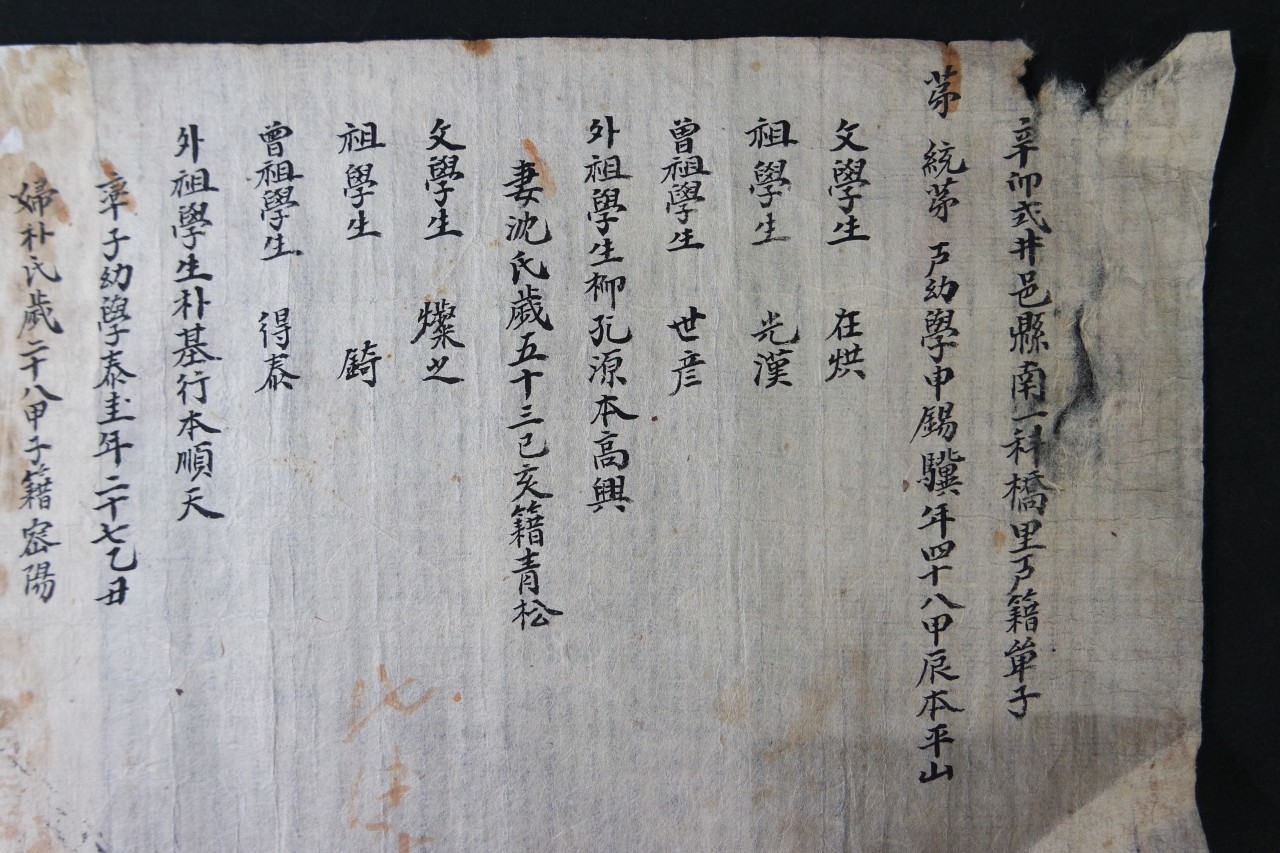 辛卯式井邑縣南一科橋里戶籍單子
苐 統苐 戶幼學申錫驥年四十八甲辰本平山
父學生 在烘
祖學生 光漢
曾祖學生 世彦
外祖學生柳孔源本高興
妻沈氏歲五十三己亥籍青松
父學生 燦之
祖學生 錡
曾祖學生 得泰
外祖學生朴基行本順天
率子幼學泰圭年二十七乙丑
婦朴氏歲二十八甲子籍密陽